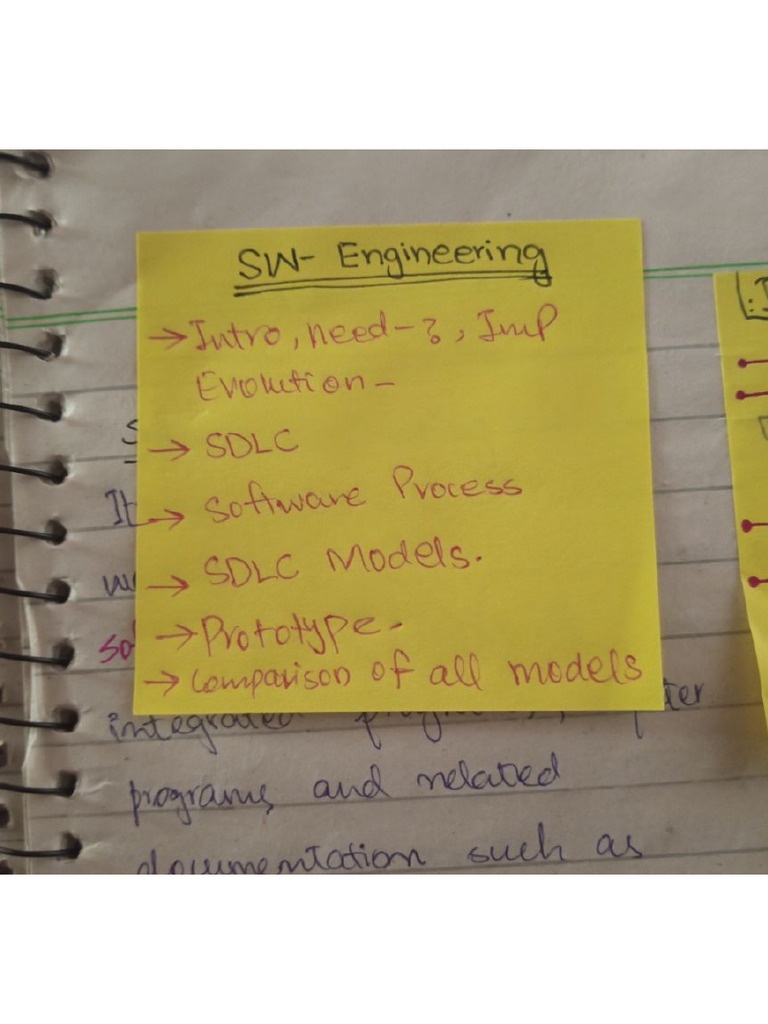 SW- Engineering
→ Intro, need-?, Imp
Evolution-
→ SDLC
It
→ Software Process
→ SDLC Models.
→ Prototype-
→ Comparison of all models
integrated
programs, and related
documentation such as